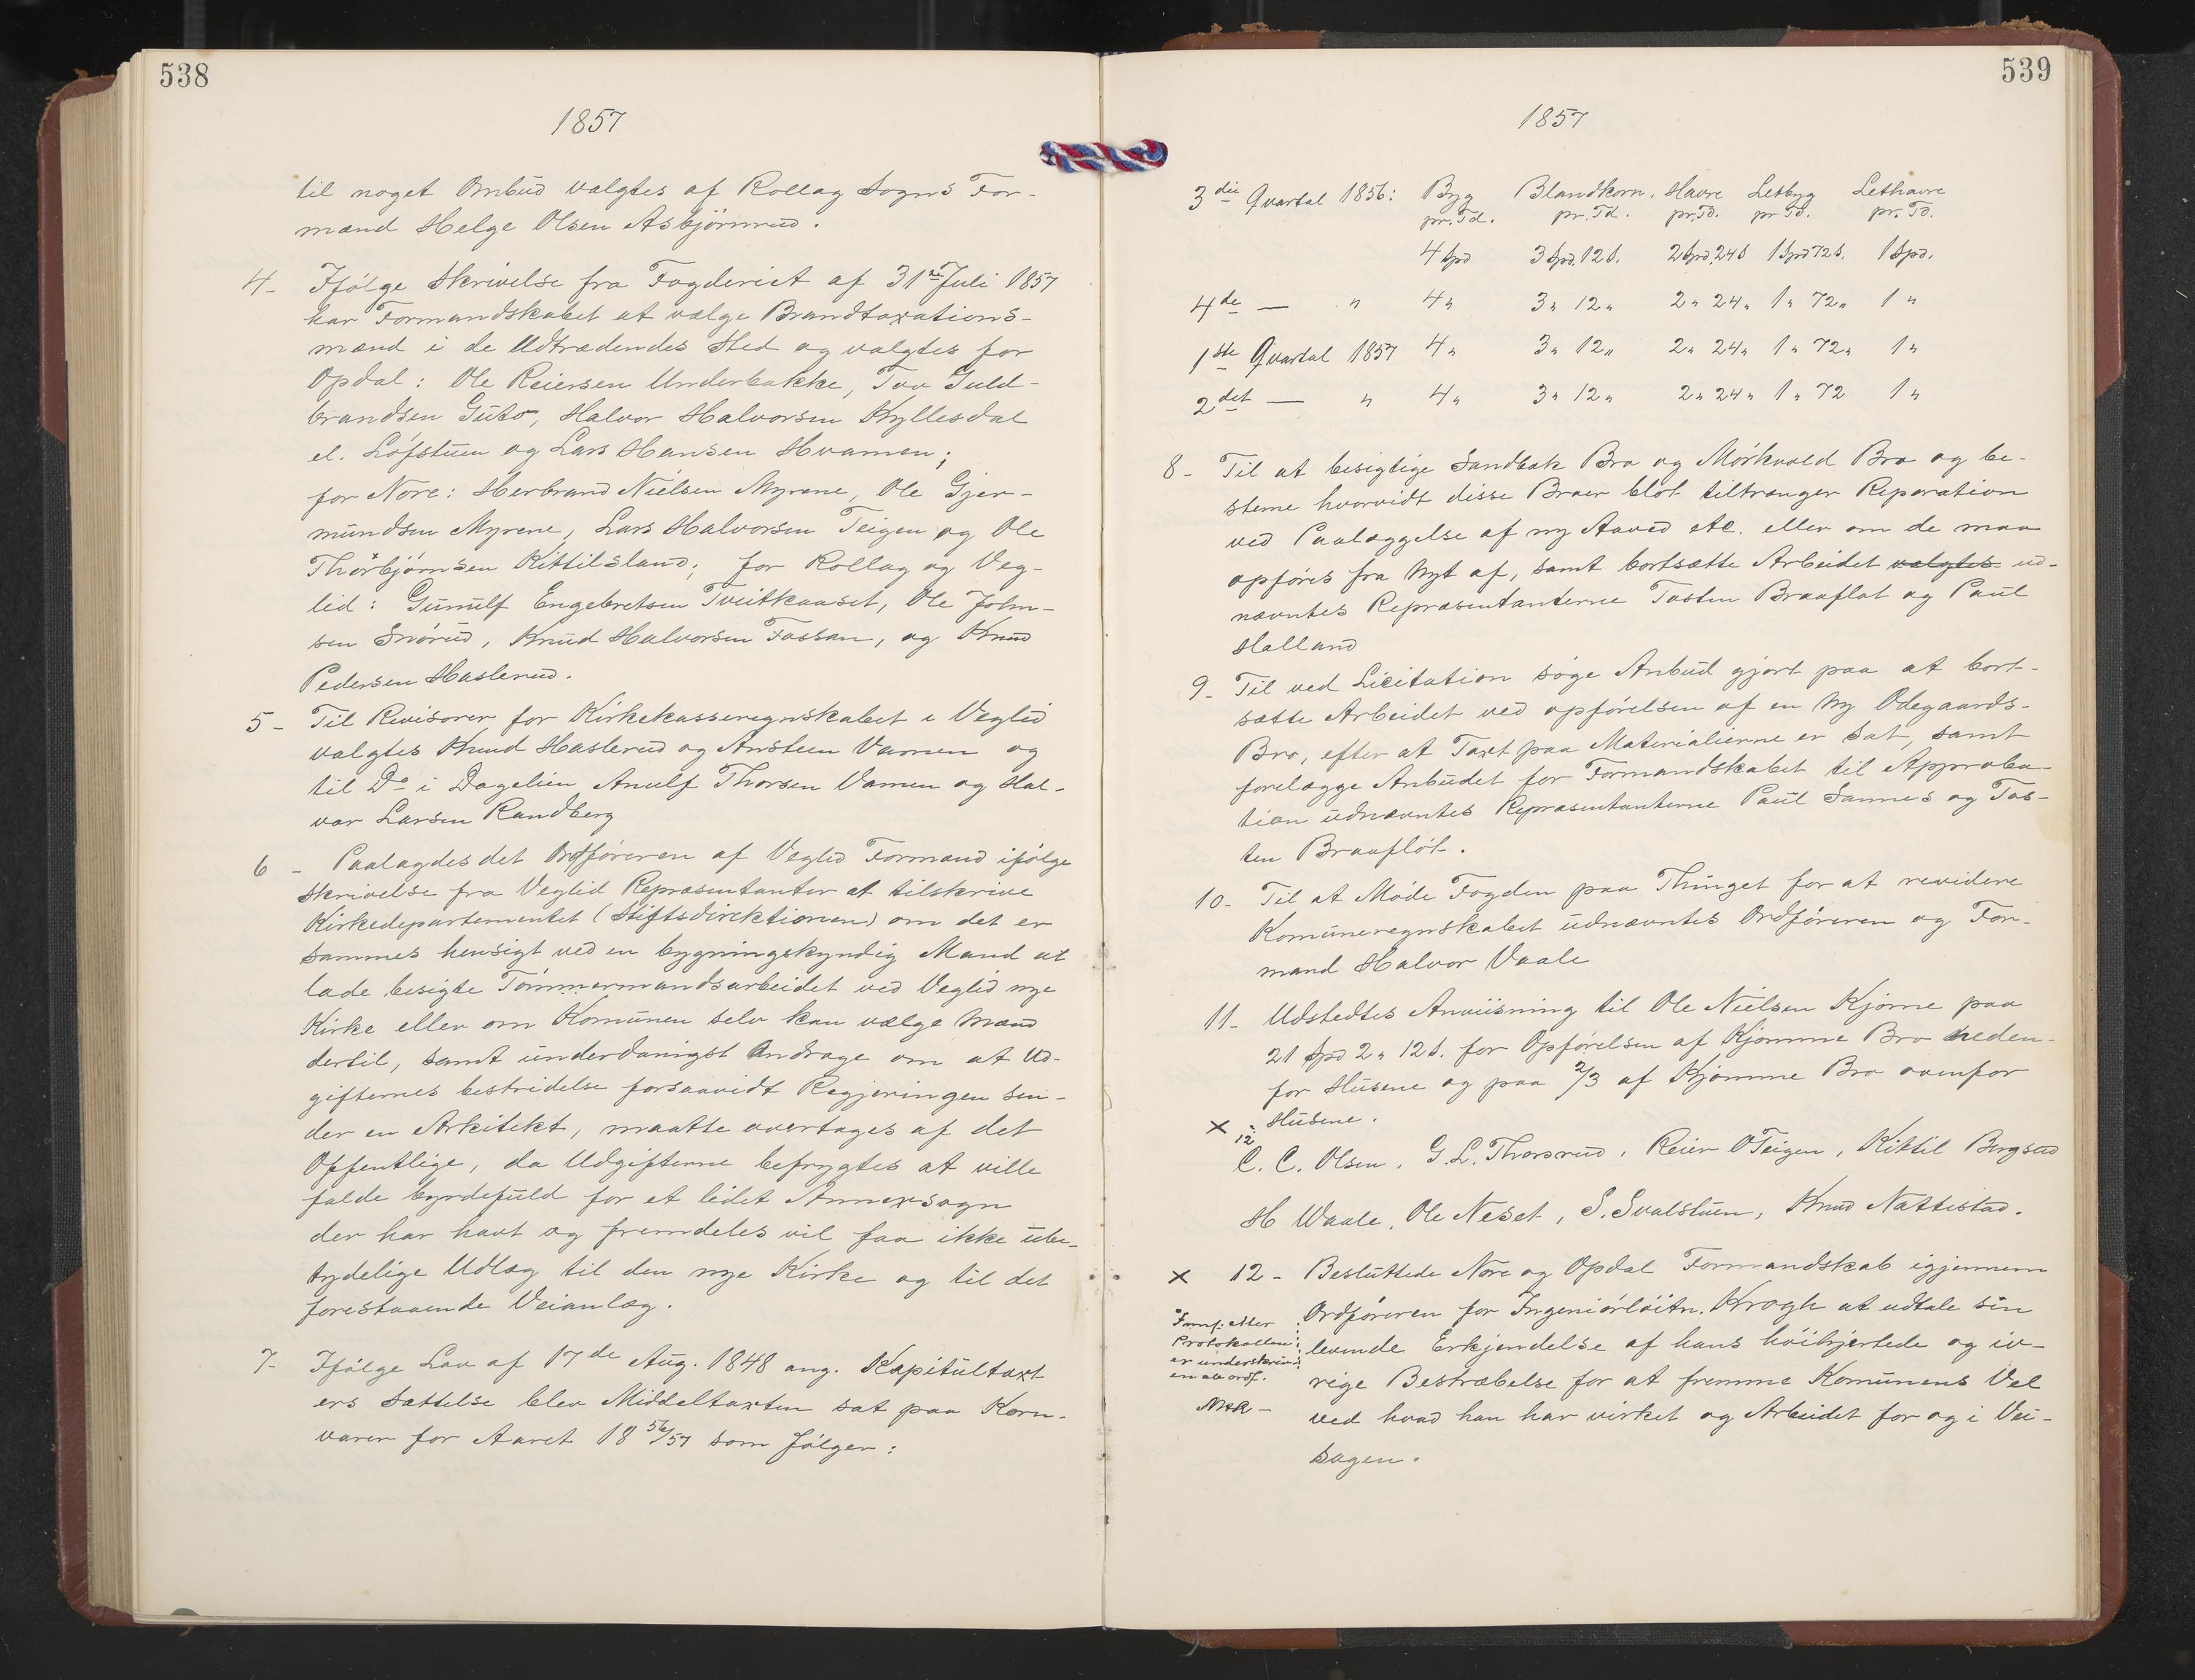 538
1857
til noget Ombud valgtes af Rollag Sogns For-
mænd Helge Olsen Asbjörnrud.
4- Ifölge Skrivelse fra Fogderiet af 31te Juli 1857
har Formandskabet at vælge Brandtaxations-
mænd i de Udtrædendes Sted og valgtes for
Opdal: Ole Reiersen Underbakke, Tov Guld-
brandsen Guto, Halvor Halvorsen Kyllesdal
el. Löfstuen og Lars Hansen Hvamen;
for Nore: Herbrand Nielsen Myrene, Ole Gjer-
mundsen Myrene, Lars Halvorsen Teigen og Ole
Thorbjörnsen Kittilsland; for Rollag og Veg-
lid: Gunulf Engebretsen Tveitkaaset, Ole John-
sen Snörud, Knud Halvorsen Fossan, og Knud
Pedersen Haslerud.
5- Til Revisorer for Kirkekasseregnskabet i Veglid
valgtes Knud Haslerud og Ansteen Vamen og
til Do i Dagelien Anulf Thorsen Vamen og Hal-
vor Larsen Randberg
6 - Paalagdes det Ordföreren af Veglid Formand ifölge
Skrivelse fra Veglid Repræsentanter at tilskrive
Kirkedepartementet (Stiftsdirektionen) om det er
sammes hensigt ved en bygningskyndig Mand at
lade besigte Tömmermandsarbeidet ved Veglid nye
Kirke eller om Komunen selv kan vælge Mænd
dertil, samt underdanigst Andrage om at Ud-
gifternes bestridelse forsaavidt Regjeringen sen-
der en Arkitekt, maatte overtages af det
Offentlige, da Udgifterne befrygtes at ville
falde byrdefuld for et lidet Annexsogn
der har havt og fremdeles vil faa ikke ube-
tydelige Udlæg til den nye Kirke og til det
forestaaende Veianlæg.
7- Ifölge Lov af 17de Aug. 1848 ang. Kapitultaxt
ers Sættelse blev Middeltaxten sat paa Korn-
varer for Aaret 18 56/57 som fölger:
539
1857
3die Qvartal 1856: Byg Blandkorn. Havre Letbyg Lethavre
pr. Td. pr. Td. pr. Td. pr Td. pr. Td.
4 Spd 3 Spd. 12 s. 2 Spd. 24 s 1 Spd 72 s. 1 Spd.
4de — " 4 " 3 " 12 " 2 " 24 " 1 " 72 " 1 "
1ste Qvartal 1857 4 " 3 " 12 " 2 " 24 " 1 " 72 " 1 "
2det — " 4 " 3 " 12 " 2 " 24 " 1 " 72 1 "
8- Til at besigtige Sandbæk Bro og Mörkvold Bro og be-
steme hvorvidt disse Broer blot tiltrænger Reparation
ved Paalæggelse af ny Aaved etc. eller om de maa
opföres fra Nyt af, samt bortsætte Arbeidet valgtes ud-
nævntes Repræsentanterne Tosten Braaflot og Paul
Halland
9- Til ved Licitation söge Anbud gjort paa at bort-
sætte Arbeidet ved opförelsen af en Ny Ödegaards-
Bro, efter at Taxt paa Materialierne er sat, samt
forelægge Anbudet for Formandskabet til Approba-
tion udnævntes Repræsentanterne Paul Sønnes og Tos-
ten Braaflöt.
10- Til at Möde Fogden paa Thinget for at revidere
Komuneregnskabet udnævntes Ordföreren og For-
mand Halvor Vaale
11- Udstedtes Anviisning til Ole Nielsen Kjömme paa
21 Spd 2 " 12 s. for Opförelsen af Kjömme Bro neden-
for Husene og paa 2/3 af Kjömme Bro ovenfor
x 12 Husene.
C. C. Olsen, G. L. Thorsrud, Reier O Teigen, Kittil Bergsud
H Waale, Ole Neset, S. Svalstuen, Knud Nattestad.
x 12- Besluttede Nore og Opdal Formandskab igjennem
Ordföreren for Ingeniörlöitn. Krogh at udtale sin
levende Erkjendelse af hans höihjertede og iv-
rige Bestræbelse for at fremme Komunens Vel
ved hvad han har virket og Arbeidet for og i Vei-
sagen.
efter
Protokollen
er underskriv-
en av ordf.